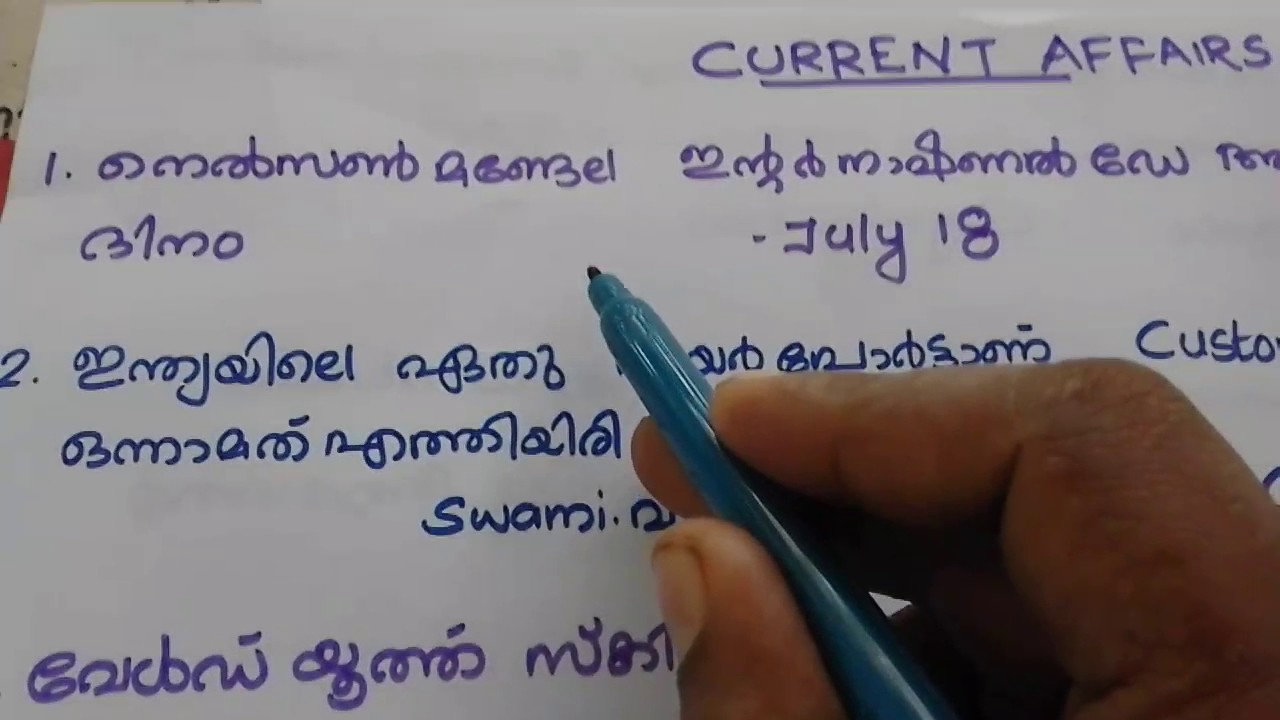 CURRENT AFFAIRS
1. നെൽസൺ മണ്ടേല ഇന്റർനാഷണൽ ഡേ
ദിനം - July 18
2. ഇന്ത്യയിലെ ഏതു യർപോർട്ടാണ് Custo
ഒന്നാമത് എത്തിയിരി
Swami. വ
വേൾഡ് യൂത്ത് സ്കി